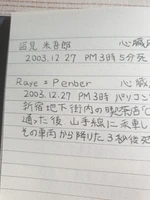 恐見 米吾郎 心臓
2003.12.27 PM3時5分死
Raye=Penber 心臓
2003.12.27 PM3時 パソコン
新宿地下街内の喫茶店で
通った後 山手線に乗車し
その車両から降りた3秒後死